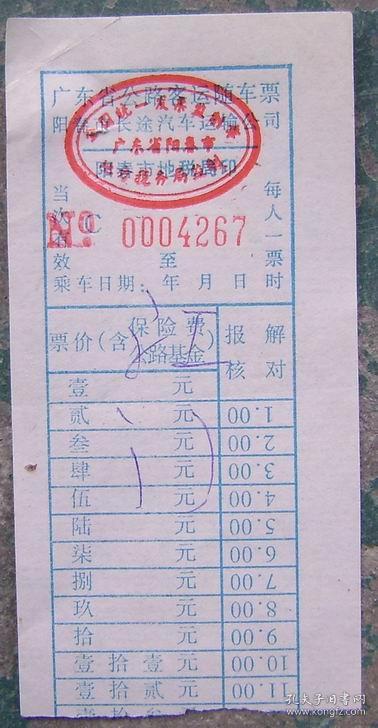 广东省公路客运随车票
阳春市长途汽车运输公司
全国统一发票监制章
广东省阳春市
税务局监制
阳春市地税局印
当次有效
每人一票
№ C 0004267
至
乘车日期: 年 月 日 时
票价(含保险费公路基金)
报核
解对
壹 元
贰 元 1.00
叁 元 2.00
肆 元 3.00
伍 元 4.00
陆 元 5.00
柒 元 6.00
捌 元 7.00
玖 元 8.00
拾 元 9.00
壹拾壹元 10.00
壹拾贰元 11.00
孔夫子旧书网
www.kongfz.com